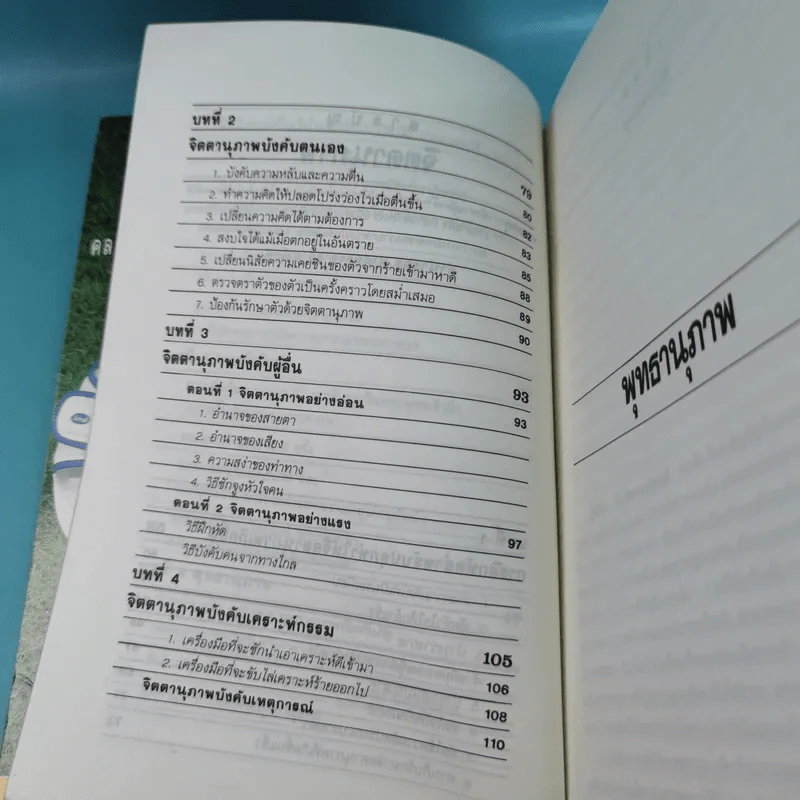 บทที่ 2
จิตตานุภาพบังคับตนเอง
1. บังคับความหลับและความตื่น 79
2. ทำความคิดให้ปลอดโปร่งว่องไวเมื่อตื่นขึ้น 80
3. เปลี่ยนความคิดได้ตามต้องการ 82
4. สงบใจได้แม้เมื่อตกอยู่ในอันตราย 83
5. เปลี่ยนนิสัยความเคยชินของตัวจากร้ายเข้ามาหาดี 85
6. ตรวจตราตัวของตัวเป็นครั้งคราวโดยสม่ำเสมอ 88
7. ป้องกันรักษาตัวด้วยจิตตานุภาพ 89
90
บทที่ 3
จิตตานุภาพบังคับผู้อื่น 93
ตอนที่ 1 จิตตานุภาพอย่างอ่อน 93
1. อำนาจของสายตา
2. อำนาจของเสียง
3. ความสง่าของท่าทาง
4. วิธีชักจูงหัวใจคน
ตอนที่ 2 จิตตานุภาพอย่างแรง 97
วิธีฝึกหัด
วิธีบังคับคนจากทางไกล
บทที่ 4
จิตตานุภาพบังคับเคราะห์กรรม 105
1. เครื่องมือที่จะชักนำเอาเคราะห์ดีเข้ามา 106
2. เครื่องมือที่จะขับไล่เคราะห์ร้ายออกไป 108
จิตตานุภาพบังคับเหตุการณ์ 110
พุทธานุภาพ
คล